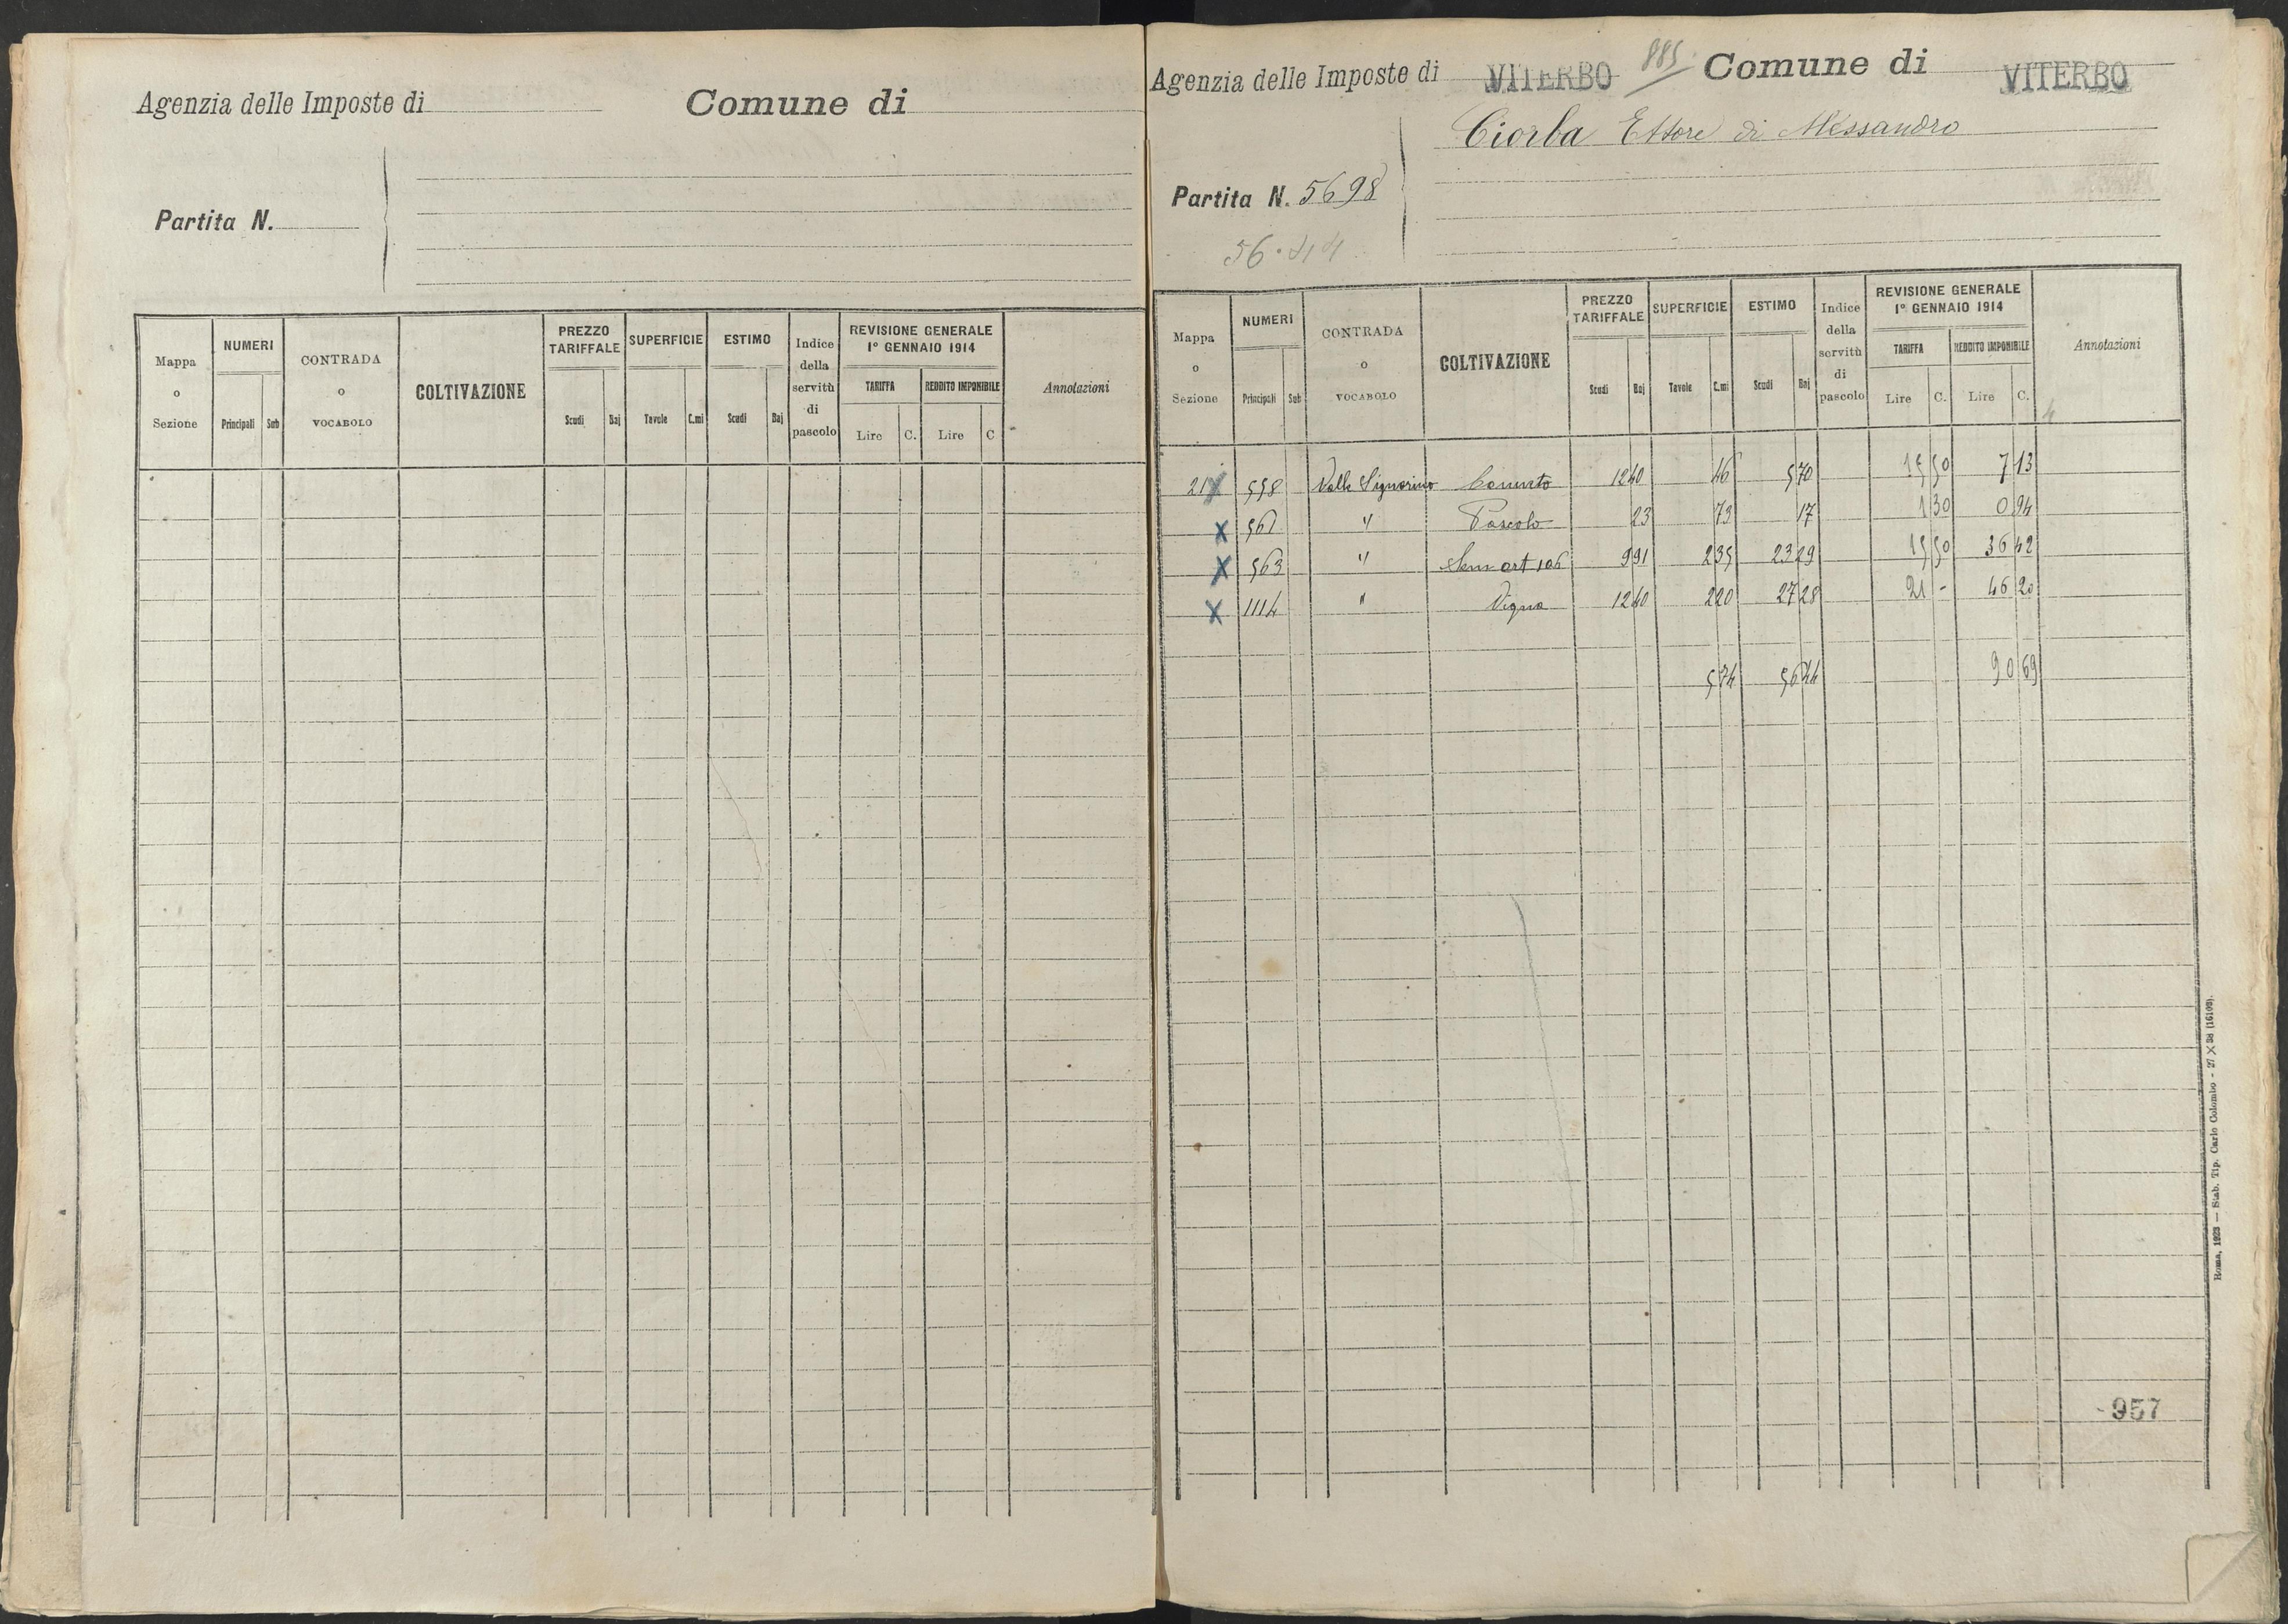 Agenzia delle Imposte di Comune di
Partita N.
Mappa o Sezione NUMERI Principali Sub CONTRADA o VOCABOLO COLTIVAZIONE PREZZO TARIFFALE Scudi Baj SUPERFICIE Tavole C.mi ESTIMO Scudi Baj Indice della servitù di pascolo REVISIONE GENERALE 1° GENNAIO 1914 TARIFFA Lire C. REDDITO IMPONIBILE Lire C Annotazioni
Agenzia delle Imposte di VITERBO 885 Comune di VITERBO
Ciorba Ettore di Alessandro
Partita N. 5698
56.44
Mappa o Sezione NUMERI Principali Sub CONTRADA o VOCABOLO COLTIVAZIONE PREZZO TARIFFALE Scudi Baj SUPERFICIE Tavole C.mi ESTIMO Scudi Baj Indice della servitù di pascolo REVISIONE GENERALE 1° GENNAIO 1914 TARIFFA Lire C. REDDITO IMPONIBILE Lire C. Annotazioni
21 X 558 Valle Signorino Canneto 12 40 46 5 70 15 50 7 13
X 561 " Pascolo 23 73 17 1 30 0 94
X 563 " Sem art 106 9 91 2 35 23 29 15 50 36 42
X 1114 " Vigna 12 40 2 20 27 28 21 - 46 20
5 74 56 44 90 69
Roma, 1923 — Stab. Tip. Carlo Colombo - 27 X 38
957